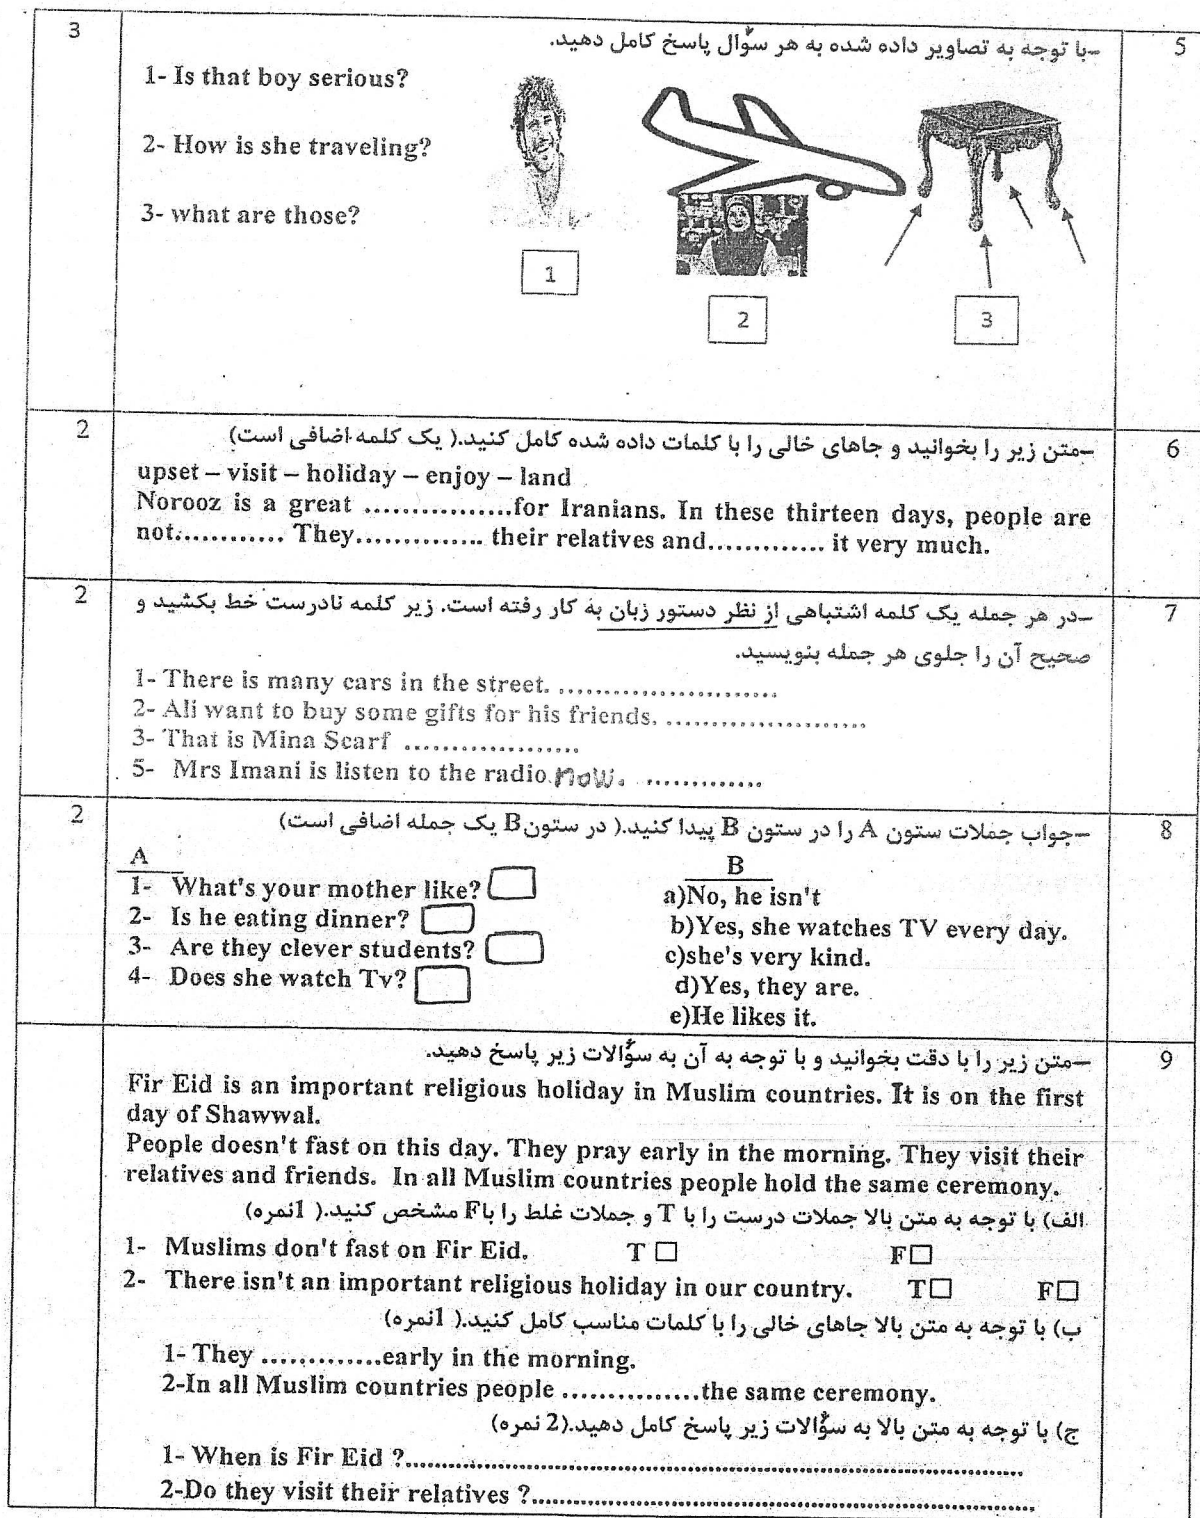 3
5
-با توجه به تصاویر داده شده به هر سؤال پاسخ کامل دهید.
1- Is that boy serious?
2- How is she traveling?
3- what are those?
1
2
3
2
6
-متن زیر را بخوانید و جاهای خالی را با کلمات داده شده کامل کنید.( یک کلمه اضافی است)
upset – visit – holiday – enjoy – land
Norooz is a great .................for Iranians. In these thirteen days, people are
not............. They............... their relatives and............. it very much.
2
7
-در هر جمله یک کلمه اشتباهی از نظر دستور زبان به کار رفته است. زیر کلمه نادرست خط بکشید و
صحیح آن را جلوی هر جمله بنویسید.
1- There is many cars in the street. .........................
2- Ali want to buy some gifts for his friends. .......................
3- That is Mina Scarf ....................
5- Mrs Imani is listen to the radio now. .............
2
8
-جواب جملات ستون A را در ستون B پیدا کنید.( در ستون B یک جمله اضافی است)
A
B
1- What's your mother like?
a)No, he isn't
2- Is he eating dinner?
b)Yes, she watches TV every day.
3- Are they clever students?
c)she's very kind.
4- Does she watch Tv?
d)Yes, they are.
e)He likes it.
9
-متن زیر را با دقت بخوانید و با توجه به آن به سؤالات زیر پاسخ دهید.
Fir Eid is an important religious holiday in Muslim countries. It is on the first
day of Shawwal.
People doesn't fast on this day. They pray early in the morning. They visit their
relatives and friends. In all Muslim countries people hold the same ceremony.
الف) با توجه به متن بالا جملات درست را با T و جملات غلط را با F مشخص کنید.( 1نمره)
1- Muslims don't fast on Fir Eid. T□ F□
2- There isn't an important religious holiday in our country. T□ F□
ب) با توجه به متن بالا جاهای خالی را با کلمات مناسب کامل کنید.( 1نمره)
1- They .............early in the morning.
2-In all Muslim countries people ................the same ceremony.
ج) با توجه به متن بالا به سؤالات زیر پاسخ کامل دهید.(2 نمره)
1- When is Fir Eid ?...............................................................................
2-Do they visit their relatives ?................................................................